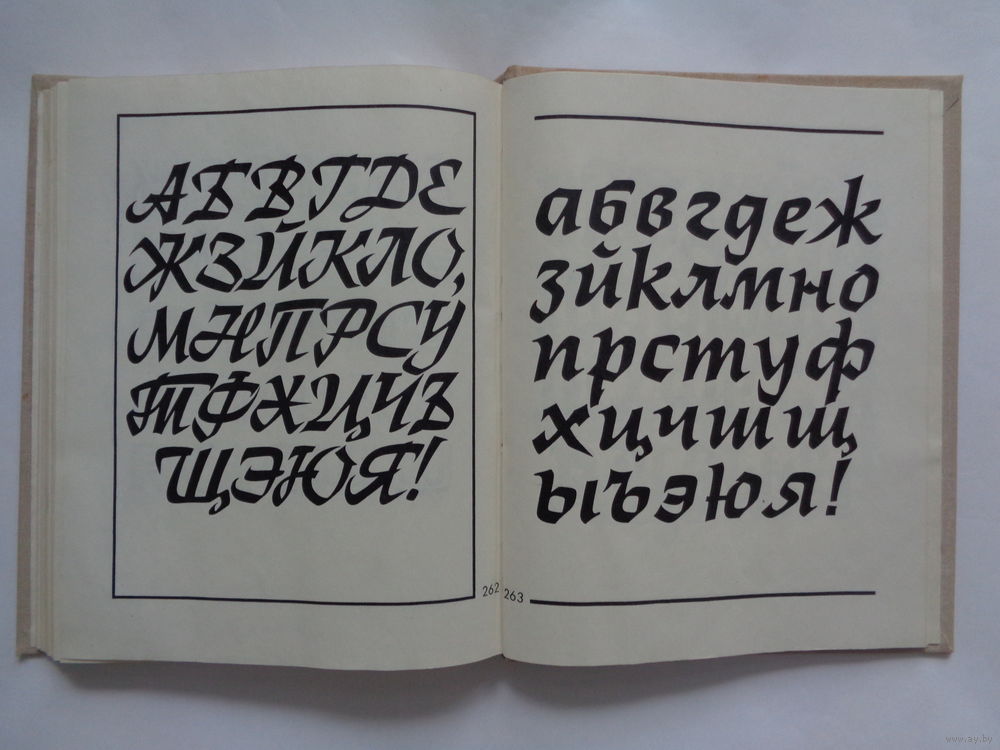 АБВГДЕ
ЖЗЙКЛО,
МНПРСУ
ТФХЦЧЪ
ЩЭЮЯ!
262
абвгдеж
зйклмно
прстуф
хцчшщ
ыъэюя!
263
www.ay.by